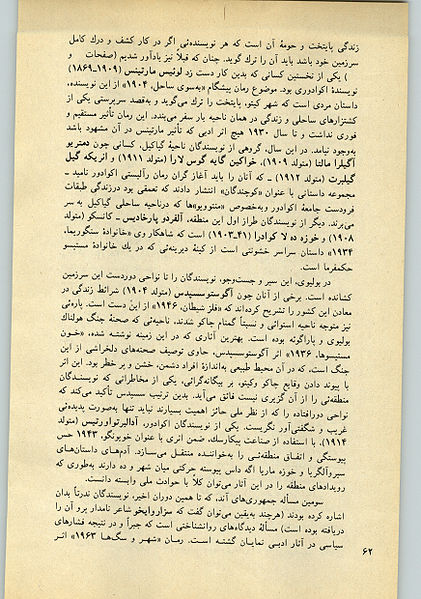 زندگی پایتخت و حومهٔ آن است که هر نویسنده‌ئی اگر در کار کشف و درك کامل
سرزمین خود باشد باید آن را ترك گوید. چنان که قبلاً نیز یادآور شدیم (صفحات و
) یکی از نخستین کسانی که بدین کار دست زد لوئیس مارتینس (۱۹۰۹ـ۱۸۶۹)
نویسندهٔ اکوادوری بود. موضوع رمان پیشگام «به‌سوی ساحل، ۱۹۰۴» از این نویسنده،
داستان مردی است که شهر کیتو، پایتخت را ترك می‌گوید و به‌قصد سرپرستی یکی از
کشتزارهای ساحلی و زندگی در همان ناحیه بار سفر می‌بندد. این رمان تأثیر مستقیم و
فوری نداشت و تا سال ۱۹۳۰ هیچ اثر ادبی که تأثیر مارتینس در آن مشهود باشد
به‌وجود نیامد. در این سال، گروهی از نویسندگان ناحیهٔ گیاکیل، کسانی چون دمتریو
آگیلرا مالتا (متولد ۱۹۰۹)، خواکین گایه گوس لارا (متولد ۱۹۱۱) و انریکه گیل
گیلبرت (متولد ۱۹۱۲) ـ که آنان را باید آغاز گران رمان رآلیستی اکوادور نامید ـ
مجموعه داستانی با عنوان «کوچندگان» انتشار دادند که تعمقی بود درزندگی طبقات
فرودست جامعهٔ اکوادور وبه‌خصوص «منتوویو»ها که درناحیه ساحلی گیاکیل به سر
می‌برند. دیگر از نویسندگان طراز اول این منطقه، آلفردو پارخادیس ـ کانسکو (متولد
۱۹۰۸) و خوزه ده لا کوادرا (۴۱ـ۱۹۰۳) است که شاهکار وی «خانوادهٔ سنگوریما،
۱۹۳۴» داستان سراسر خشونتی است از کینهٔ دیرینه‌ئی که در یك خانوادهٔ مستیسو
حکمفرما است.
در بولیوی، این سیر و جست‌وجو، نویسندگان را تا نواحی دوردست این سرزمین
کشانده است. برخی از آنان چون آگوستوسسپدس (متولد ۱۹۰۴) شرائط زندگی در
معادن این کشور را تشریح کرده‌اند که «فلز شیطان، ۱۹۴۶» از این دست است. پاره‌ئی
نیز متوجه ناحیه استوائی و نسبتاً گمنام چاکو شدند، ناحیه‌ئی که صحنه جنگ هولناك
بولیوی و پاراگوئه بوده است. بهترین آثاری که در این زمینه نوشته شده، «خون
مستیسوها، ۱۹۳۶» اثر آگوستوسسپدس، حاوی توصیف صحنه‌های دلخراشی از این
جنگ است، که در آن محیط طبیعی به‌اندازهٔ افراد دشمن، خشن و پر خطر بود. این اثر
با پیوند دادن وقایع چاکو وکیتو، بر بیگانه‌گرائی، یکی از مخاطراتی که نویسندگان
منطقه‌ئی را از آن گزیری نیست فائق می‌آید. بدین ترتیب سسپدس تأکید می‌کند که
نواحی دورافتاده را که از نظر ملی حائز اهمیت بسیارند نباید تنها به‌صورت پدیده‌ئی
غریب و شگفتی‌آور نگریست. یکی از نویسندگان اکوادور، آدالبرتواورتیس (متولد
۱۹۱۴)، با استفاده از صناعت پیکارسك، ضمن اثری با عنوان خویونگو، ۱۹۴۳ حس
پیوستگی و اتفاق منطقه‌ئی را به‌خواننده منتقل می‌سازد. آدم‌های داستان‌های
سیروآلگریا و خوزه ماریا اگه داس پیوسته حرکتی میان شهر و ده دارند به‌طوری که
رویدادهای منطقه را در این آثار می‌توان کلاً با حوادث ملی وابسته دانست.
سومین مسأله جمهوری‌های آند، که تا همین دوران اخیر، نویسندگان ندرتاً بدان
اشاره کرده بودند (هرچند به‌یقین می‌توان گفت که سزاروایخو شاعر نامدار پرو آن را
دریافته بوده است) مسألهٔ دیدگاه‌های روانشناختی است که جبراً و در نتیجه فشارهای
سیاسی در آثار ادبی نمایان گشته است. رمان «شهر و سگ‌ها ۱۹۶۳» اثر
۶۲